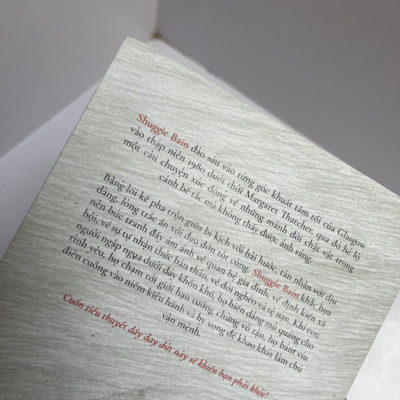 Shuggie Bain đào sâu vào từng góc khuất tăm tối của Glasgow
vào thập niên 1980 dưới thời Margaret Thatcher, qua đó hé lộ
một câu chuyện xúc động về những mảnh đời chật vật trong
cảnh bế tắc mà không thấy được ánh sáng.
Bằng lối kể pha trộn giữa bi kịch với hài hước, tàn nhẫn với dịu
dàng, lòng trắc ẩn với đau đớn tột cùng, Shuggie Bain khắc họa
nên bức tranh đầy ám ảnh về quan hệ gia đình, về định kiến xã
hội, về sự tự nhận thức bản thân, về đói nghèo và tệ nạn. Khi con
người ngắp ngụa dưới đáy khốn khó, họ hiến dâng mù quáng cho
tình yêu, họ chạm tới giới hạn tưởng chừng vô tận, họ bấu víu
điên cuồng vào niềm kiêu hãnh và hy vọng để khao khát làm chủ
vận mệnh.
Cuốn tiểu thuyết đầy day dứt này sẽ khiến bạn phải khóc!